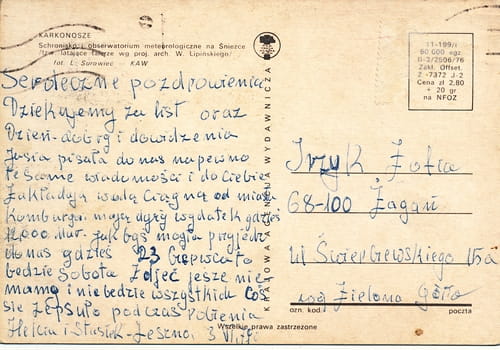 KARKONOSZE
Schronisko i obserwatorium meteorologiczne na Śnieżce
/tzw. latające talerze wg proj. arch. W. Lipińskiego/
fot. L. Surowiec KAW
KRAJOWA AGENCJA WYDAWNICZA
11-199/I
60 000 egz.
II-3/2506/76
Zakł. Offset.
Z -7372 J-2
Cena zł 2,80
+ 20 gr
na NFOZ
Serdeczne pozdrowienia
Dziękujemy za list oraz
Dzień-dobry i dowidzenia
Jasia pisała do nas napewno
Te same wiadomości i do Ciebie
Zakładają wodę ciągną od
mają duży wydatek gdzieś
12,000 jak byś mogła przyjedź
do nas gdzieś 23 Czerwca to
bedzie Sobota Zdjęć jesze nie
mamy i niebedzie wszystkich Coś
sie zepsuło podczas robienia
Helcia i Stasiek-Leszna
Irzyk Zofia
68-100 Żagań
ul Świerczewskiego 15a
woj Zielona Góra
ozn. kod poczta
Wszelkie prawa zastrzeżone